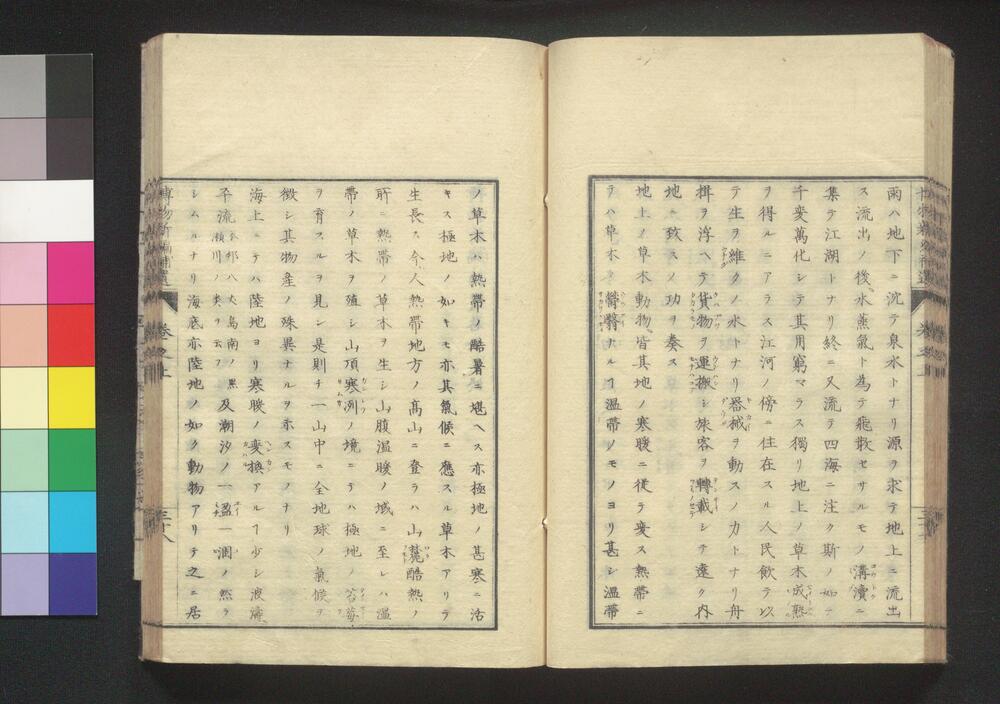 雨ハ地下ニ沈テ泉水トナリ源ヲ求テ地上ニ流出
ス流出ノ後水蒸氣ト為テ飛散セサルモノ溝瀆ニ
集テ江湖トナリ終ニ又流テ四海ニ注ク斯ノ如テ
千変萬化シテ其用窮マラス獨リ地上ノ草木成熟
ヲ得ルニアラス江河ノ傍ニ住在スル人民飲テ以
テ生ヲ維クノ水トナリ器械ヲ動スノ力トナリ舟
楫ヲ浮ヘテ貨物ヲ運搬シ旅客ヲ轉載シテ遠ク内
地ニ致スノ功ヲ奏ス
地上ノ草木動物皆其地ノ寒暖ニ従テ変ス熱帯ニ
テハ草木ノ鬱蒼ナルヿ温帯ノモノヨリ甚シ温帯
ノ草木ハ熱帯ノ酷暑ニ堪ヘス亦極地ノ甚寒ニ活
キス極地ノ如キモ亦其氣候ニ應スル草木アリテ
生長ス今人熱帯地方ノ髙山ニ登ラハ山麓酷熱ノ
所ニ熱帯ノ草木ヲ生シ山腹温暖ノ域ニ至レハ温
帯ノ草木ヲ殖シ山頂寒冽ノ境ニテハ極地ノ苔莓
ヲ育スルヲ見シ是則チ一山中ニ全地球ノ氣候ヲ
徴シ其物産ノ殊異ナルヲ示スモノナリ
海上ニテハ陸地ヨリ寒暖ノ変換アルヿ少シ波濤
平流本邦八丈島南ノ黒瀬川ノ類ヲ云フ及潮汐ノ一溢一涸ノ然ラ
シムルナリ海底亦陸地ノ如ク動物アリテ之ニ居
博物新編補遺
卷之上